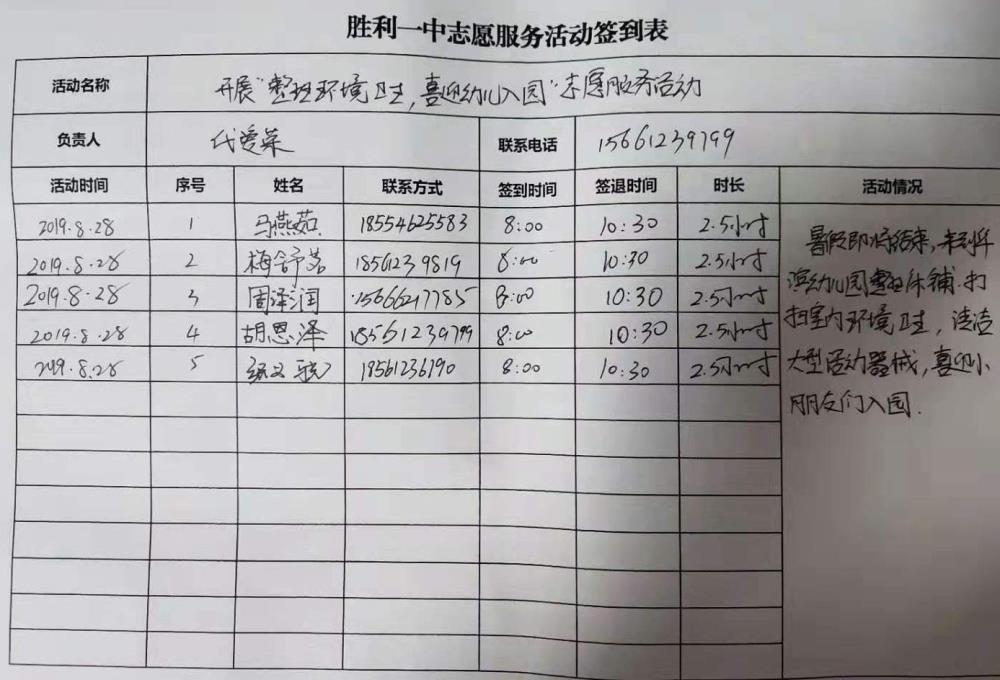 胜利一中志愿服务活动签到表
活动名称 开展“整理环境卫生,喜迎幼儿入园”志愿服务活动
负责人 代爱菜 联系电话 15661239799
活动时间 序号 姓名 联系方式 签到时间 签退时间 时长 活动情况
2019.8.28 1 马燕茹 18554625583 8:00 10:30 2.5小时
2019.8.28 2 梅舒茗 18561239819 8:00 10:30 2.5小时
2019.8.28 3 周泽润 15666217785 8:00 10:30 2.5小时
2019.8.28 4 胡恩泽 18561239799 8:00 10:30 2.5小时
2019.8.28 5 18561236190 8:00 10:30 2.5小时
暑假即将结束,来到
滨幼儿园整理床铺.打
扫室内环境卫生,清洁
大型活动器械,喜迎小
朋友们入园.